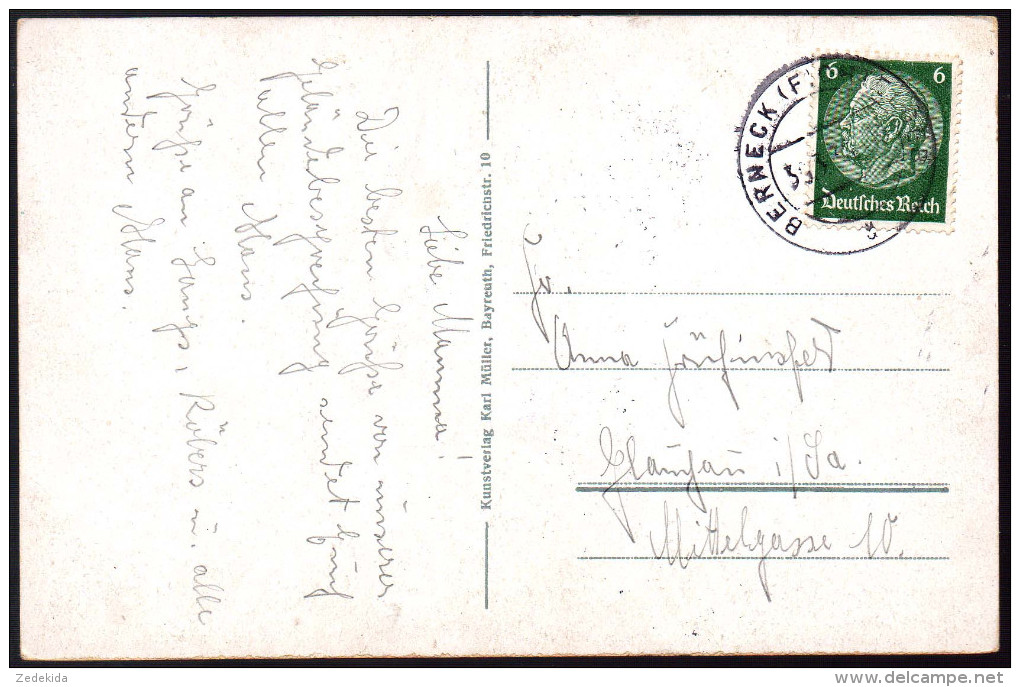 Liebe Mamma!
Die besten Grüße von unserer
Geländebesprechung sendet Euch
allen Hans.
Grüße an Langs, Röbers u. alle
andern Hans.
Kunstverlag Karl Müller, Bayreuth, Friedrichstr. 10
6 6
Deutsches Reich
BERNECK (F
Fr.
Anna
Glauchau i/Sa.
Mittelgasse 10.
Zedekida
www.delcampe.net